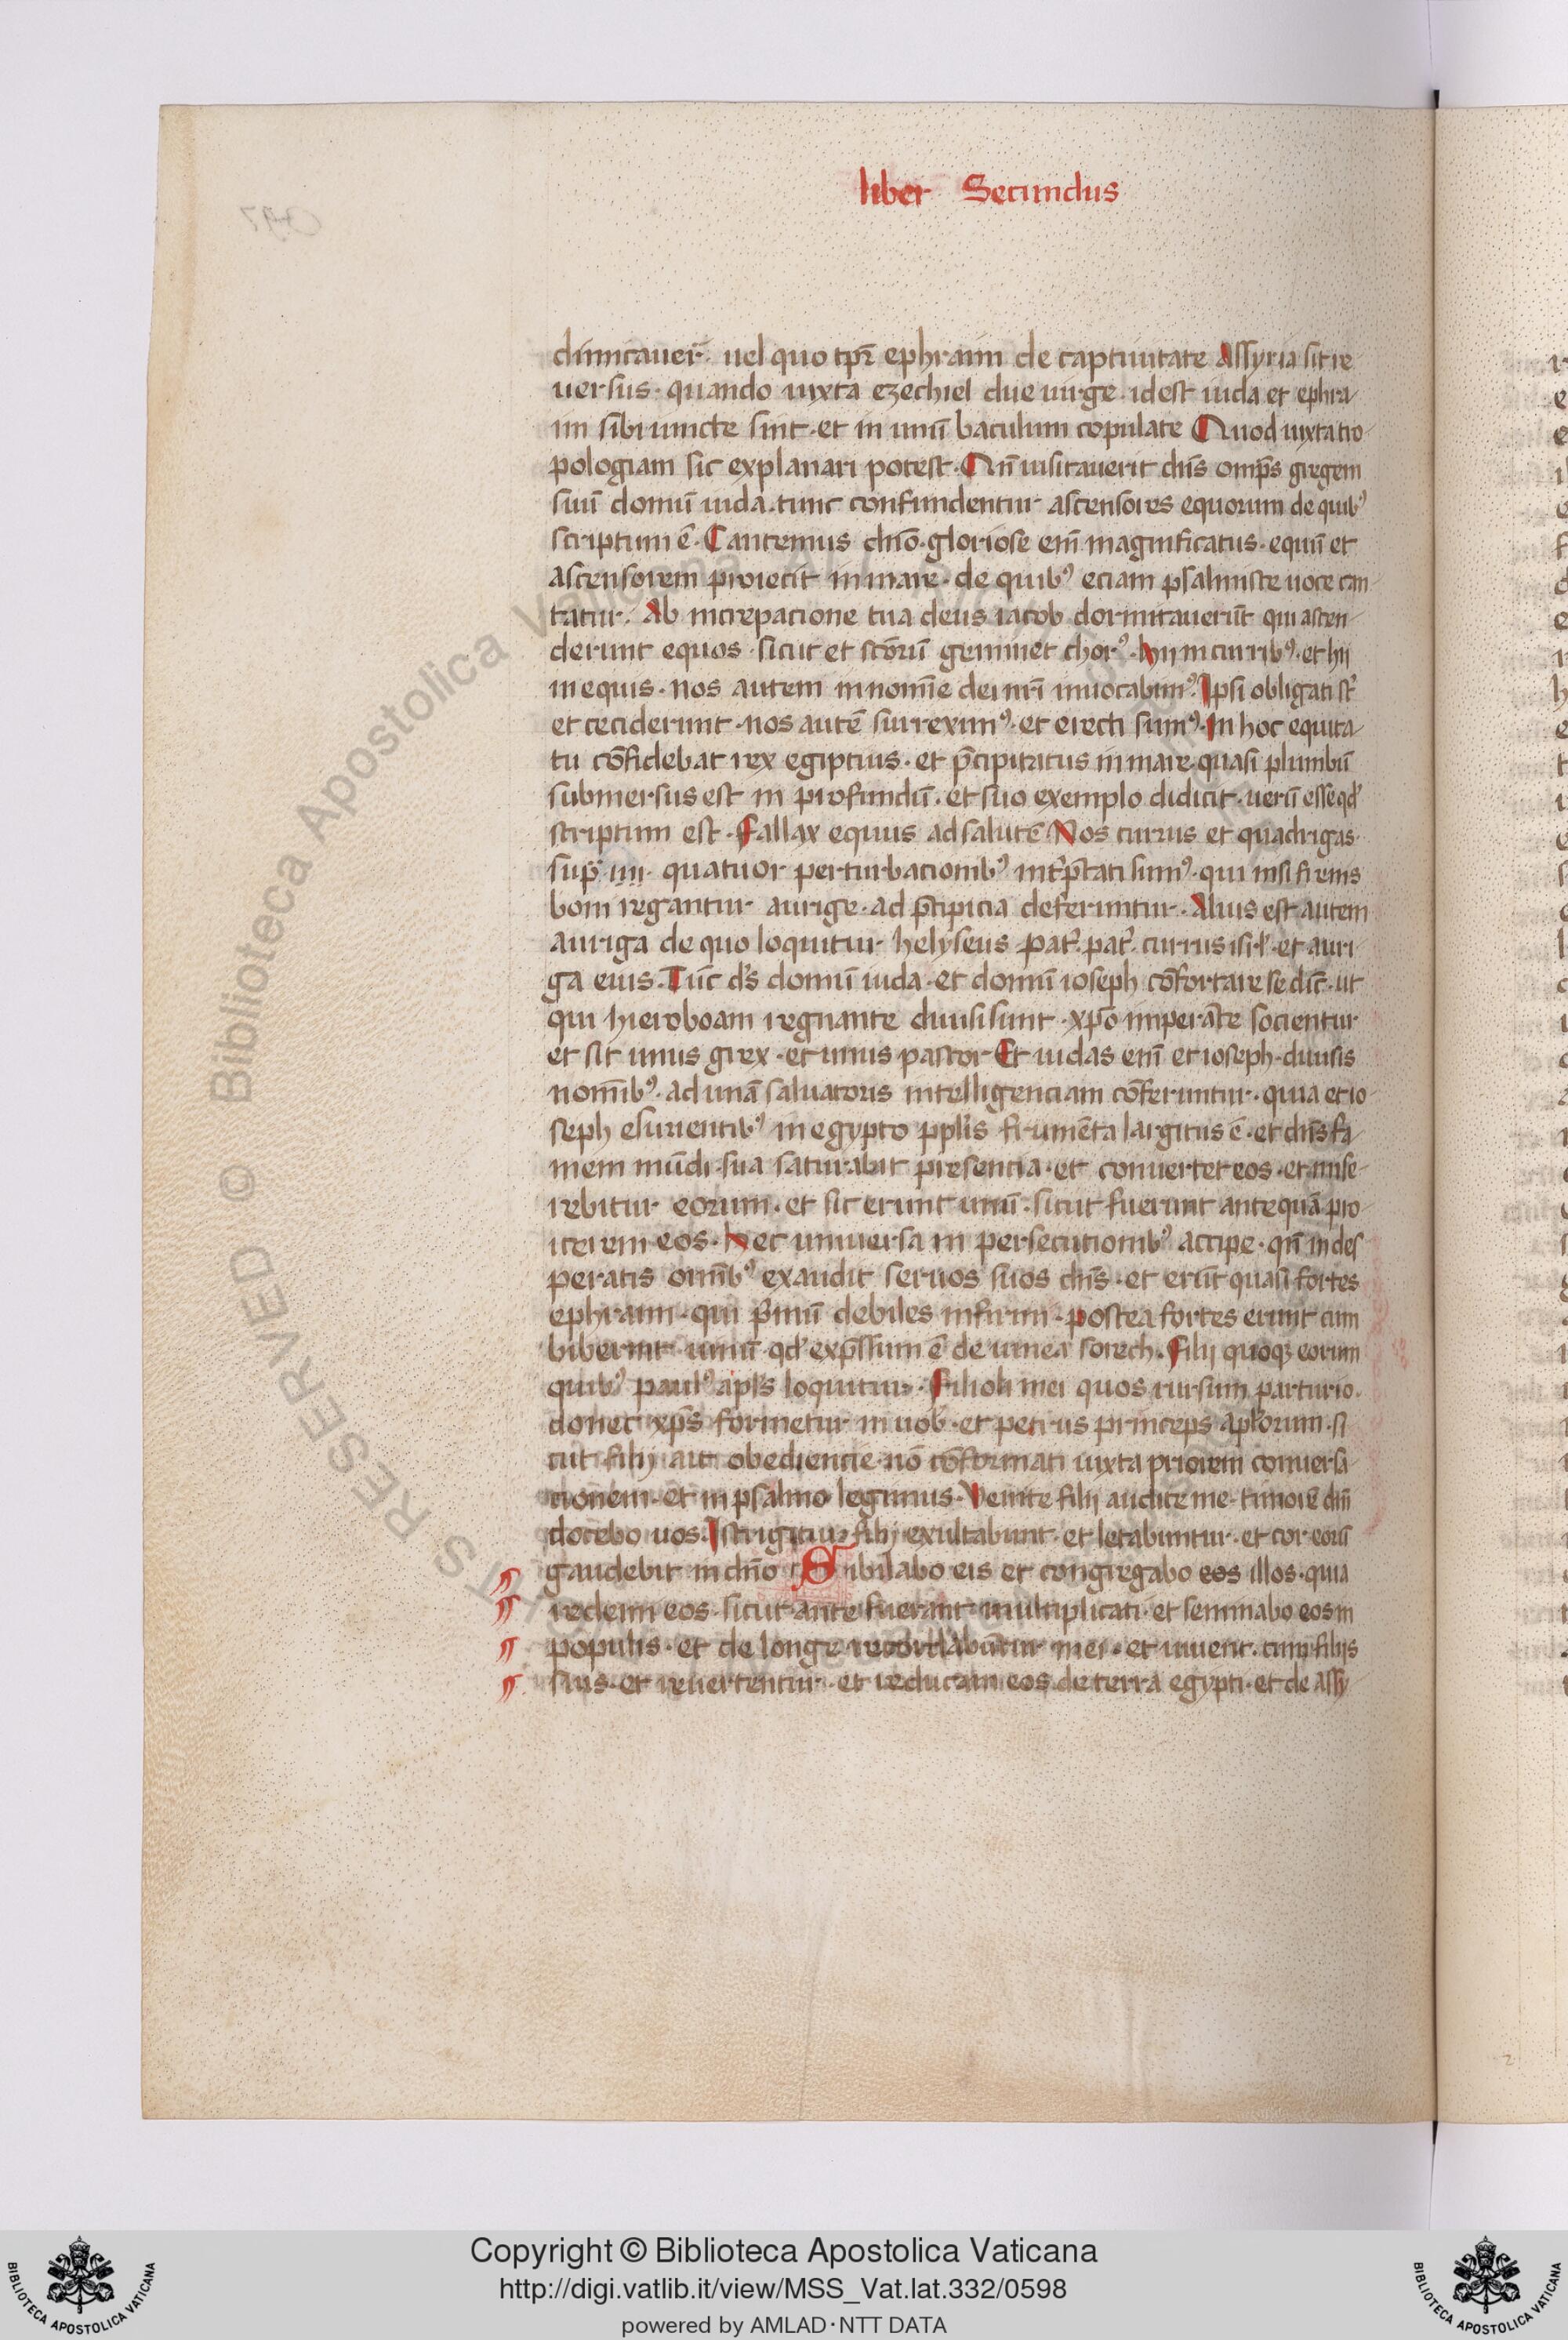 liber Secundus
dimicauer̄. uel quo tpr̄ ephraim de captiuitate Assyria sit re
uersus. quando iuxta ezechiel due uirge. idest iuda et ephra
im sibi iuncte sint. et in unū baculum copulate Quod iuxta tro
pologiam sic explanari potest. Qn̄ uisitauerit dn̄s omp̄s gregem
suū domū iuda. tunc confundentur ascensores equorum de quibꝰ
scriptum ē. Cantemus dn̄o. gloriose enī magnificatus. equū et
ascensorem proiecit in mare. de quibꝰ eciam psalmiste uoce can
tatur. Ab increpacione tua deus iacob dormitauerūt qui ascen
derunt equos. sicut et sc̄orū geminet chorꝰ. hij in curribꝰ. et hij
in equis. nos autem in nomīe dei nr̄i inuocabimꝰ. Ipsi obligati st̄
et ceciderunt. nos autē surreximꝰ. et erecti sumꝰ. In hoc equita
tu cōfidebat rex egiptius. et p̄cipitatus in mare. quasi plumbū
submersus est in profundū. et suo exemplo didicit. uerū esse qd̄
scriptum est. Fallax equus ad salutē Nos currus et quadrigas
sup̄. iiii. quatuor perturbacionibꝰ int̄p̄tati sumꝰ. qui nisi frenis
boni regantur aurige. ad p̄cipicia deferuntur. Alius est autem
auriga de quo loquitur helyseus. Pat̄. pat̄. currus isr̄l. et auri
ga eius. Tūc ds̄ domū iuda. et domū ioseph cōfortare se dic̄. ut
qui hieroboam regnante diuisi sunt. xp̄o imperāte socientur
et sit unus grex. et unus pastor Et iudas enī et ioseph. diuisis
nomībꝰ. ad unā saluatoris intelligenciam cōferuntur. quia et io
seph esurientibꝰ in egypto ppl̄is frumēta largitus ē. et dn̄s fa
mem mūdi. sua saturabit presentia. et conuertet eos. et mise
rebitur eorum. et sic erunt unū. sicut fuerunt antequā pro
icerem eos. hec uniuersa in persecutionibꝰ accipe. qn̄ in des
peratis omībꝰ exaudit seruos suos dn̄s. et erūt quasi fortes
ephraim. qui p̄mū debiles infirmi. postea fortes erunt cum
biberint uinū. qd̄ exp̄ssum ē de uinea sorech. Filij quoqꝫ eorum
quibꝰ paulꝰ apl̄s loquitur. Filioli mei quos rursum parturio.
donec xp̄s formetur in uob̄. et petrus princeps apl̄orum. si
cut filij ait obediencie. nō cōformati iuxta priorem conuersa
tionem. et in psalmo legimus. Venite filij audite me. timorē dn̄i
docebo uos. Isti igitur filij exultabunt. et letabuntur. et cor eorū
gaudebit in dn̄o Sibilabo eis et congregabo eos illos. quia
redemi eos. sicut ante fuerant multiplicati. et seminabo eos in
populis. et de longe recordabūtur mei. et uiuent. cum filijs
suis. et reuertentur. et reducam eos de terra egypti. et de assy
RESERVED © Biblioteca Apostolica Vaticana
Copyright © Biblioteca Apostolica Vaticana
http://digi.vatlib.it/view/MSS_Vat.lat.332/0598
powered by AMLAD·NTT DATA
BIBLIOTECA APOSTOLICA VATICANA
BIBLIOTECA APOSTOLICA VATICANA